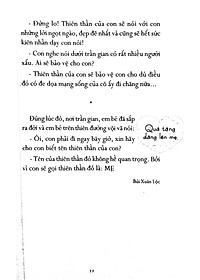 - Đừng lo! Thiên thần của con sẽ nói với con
những lời ngọt ngào, đẹp đẽ nhất và cũng sẽ hết sức
kiên nhẫn dạy con nói!
- Con nghe nói dưới trần gian có rất nhiều người
xấu. Ai sẽ bảo vệ cho con?
- Thiên thần của con sẽ bảo vệ cho dù điều
đó có đe dọa mạng sống của cô ấy đi chăng nữa...
*
Đúng lúc đó, nơi trần gian, em bé đã sắp
ra đời và em bé trên thiên đường vội vã nói:
- Ôi, con phải đi ngay bây giờ, xin hãy
cho con biết tên thiên thần của con...
- Tên của thiên thần đó không hề quan trọng. Bởi
vì con sẽ gọi thiên thần đó là: MẸ
Bùi Xuân Lộc
Quà tặng
dâng lên mẹ
19